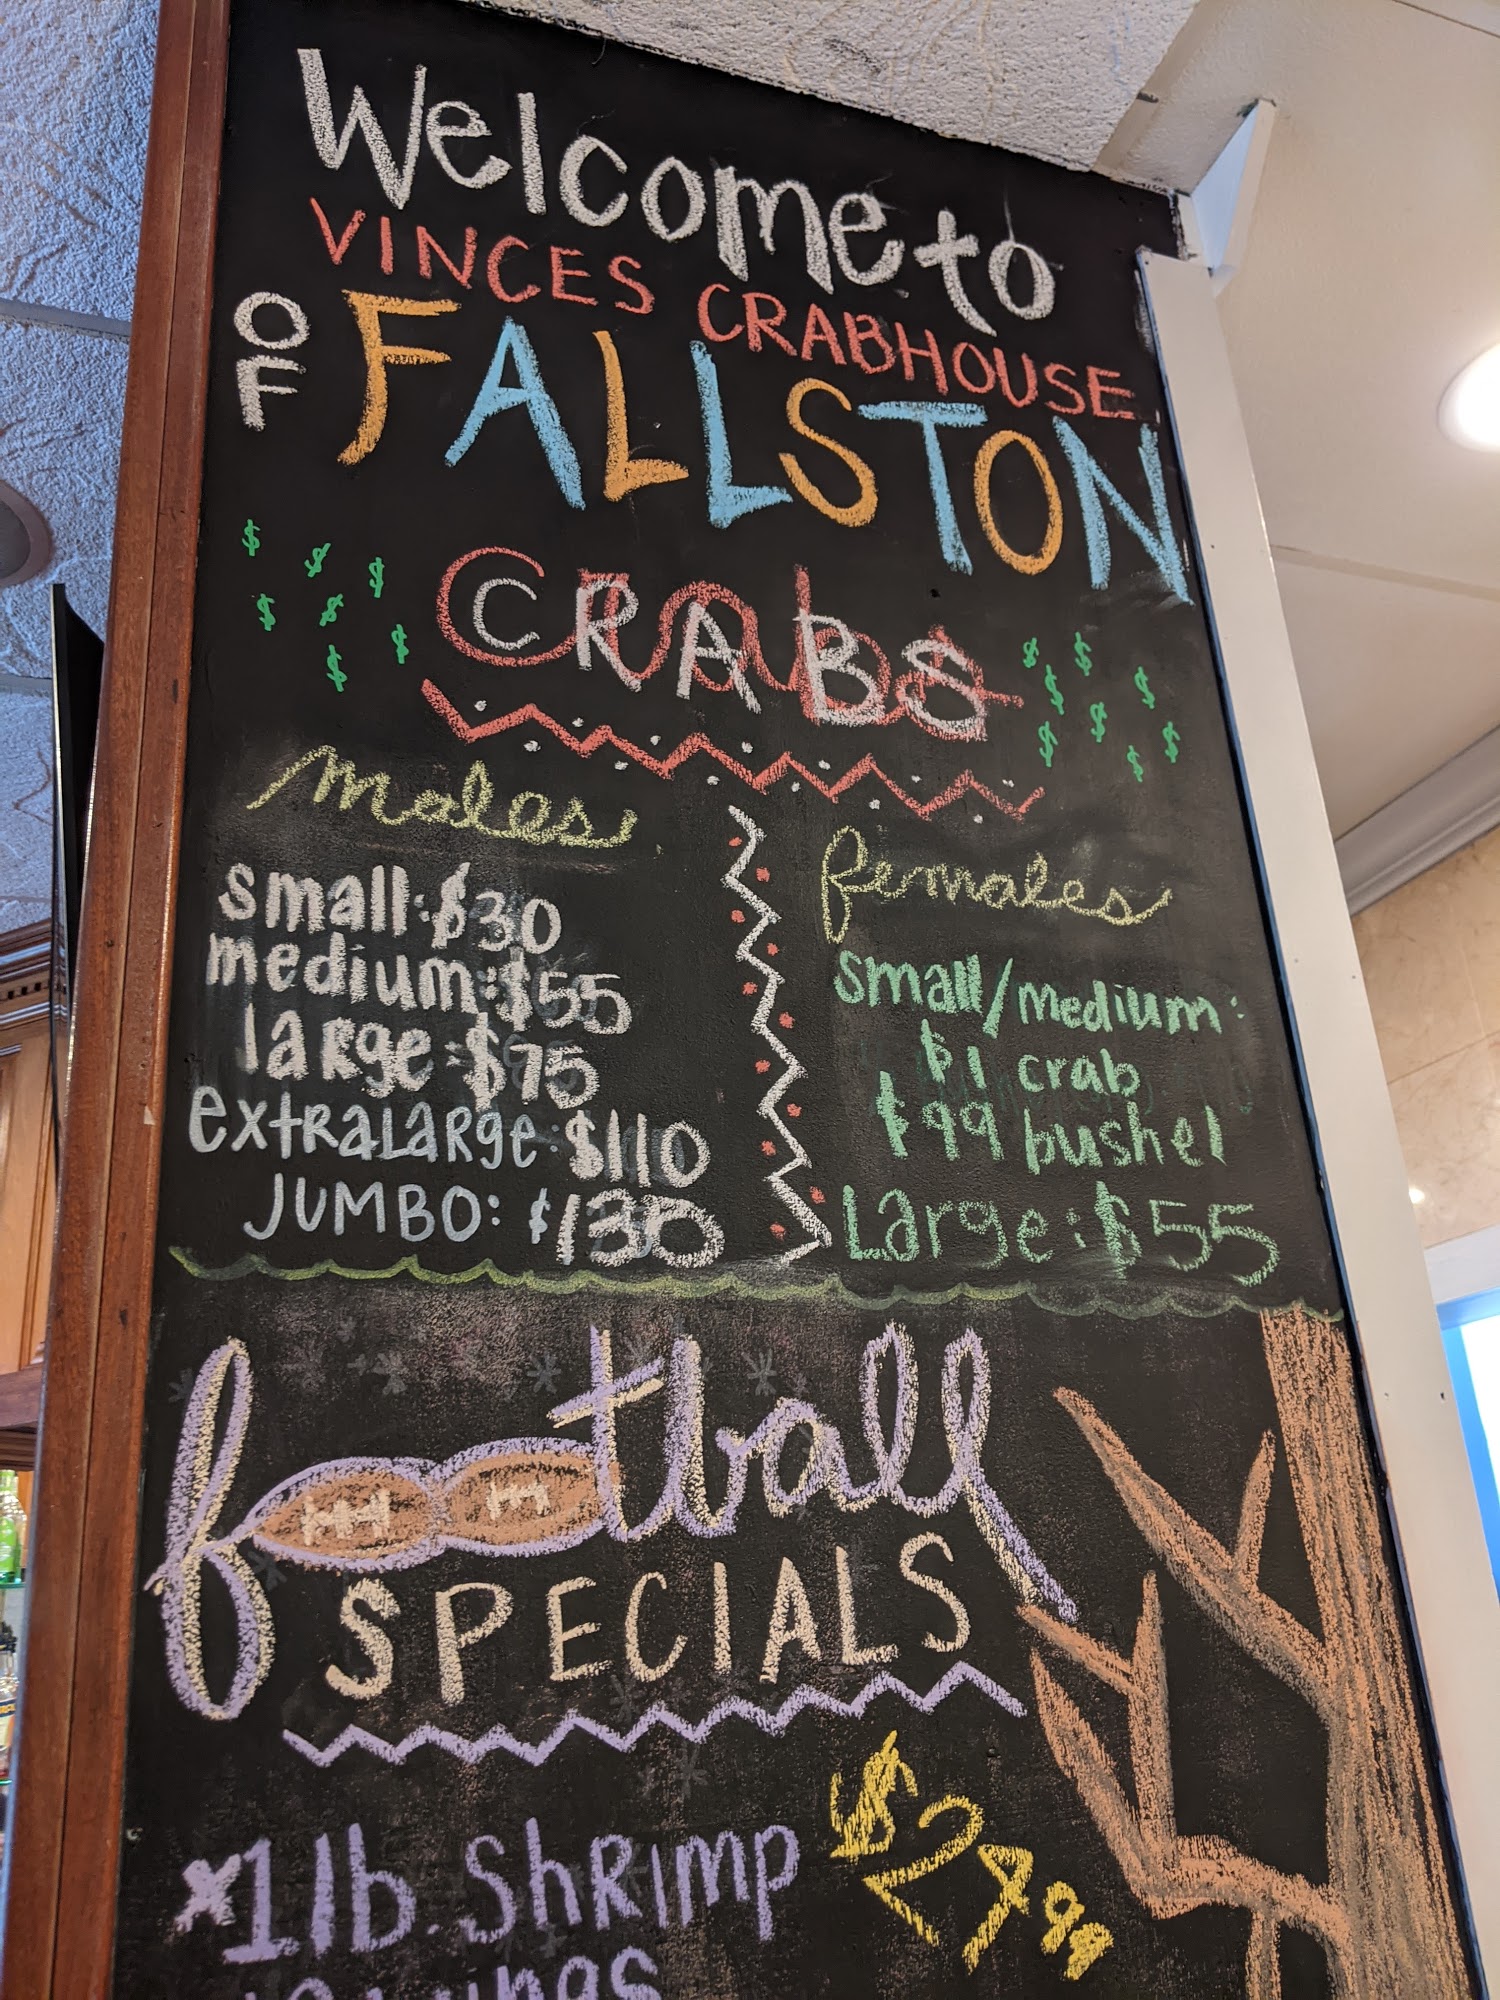 Welcome to
VINCES CRABHOUSE
OF FALLSTON
CRABS
males
small: $30
medium: $55
large: $75
extRaLaRge: $110
JUMBO: $130
females
small/medium:
$1 crab
$99 bushel
Large: $55
football
SPECIALS
*1 lb. ShRimp
$24.99